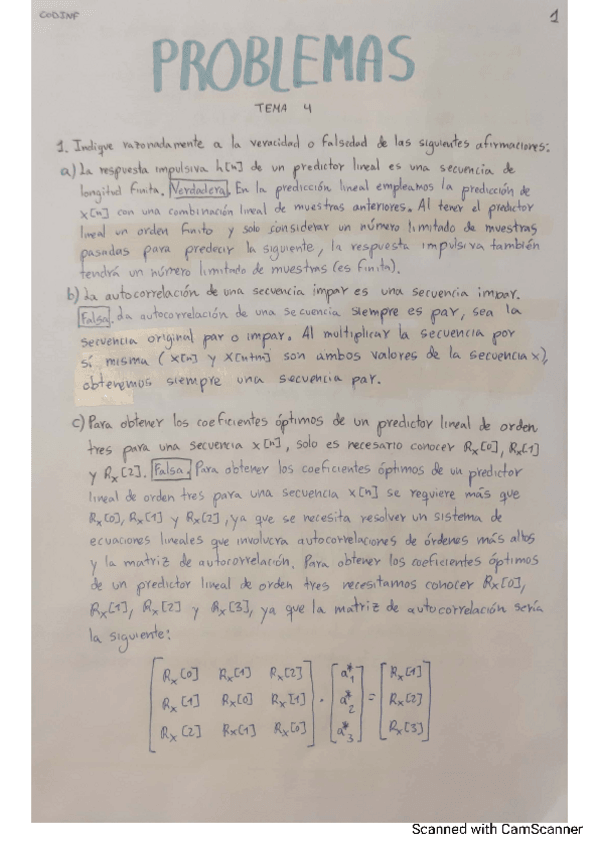 CODINF
1
PROBLEMAS
TEMA 4
1. Indique razonadamente a la veracidad o falsedad de las siguientes afirmaciones:
a) La respuesta impulsiva h[n] de un predictor lineal es una secuencia de
longitud finita. Verdadera. En la predicción lineal empleamos la predicción de
x[n] con una combinación lineal de muestras anteriores. Al tener el predictor
lineal un orden finito y solo considerar un número limitado de muestras
pasadas para predecir la siguiente, la respuesta impulsiva también
tendrá un número limitado de muestras (es finita).
b) La autocorrelación de una secuencia impar es una secuencia impar.
Falsa. La autocorrelación de una secuencia siempre es par, sea la
secuencia original par o impar. Al multiplicar la secuencia por
sí misma (x[n] y x[n+m] son ambos valores de la secuencia x),
obtenemos siempre una secuencia par.
c) Para obtener los coeficientes óptimos de un predictor lineal de orden
tres para una secuencia x[n], solo es necesario conocer Rx[0], Rx[1]
y Rx[2]. Falsa. Para obtener los coeficientes óptimos de un predictor
lineal de orden tres para una secuencia x[n] se requiere más que
Rx[0], Rx[1] y Rx[2], ya que se necesita resolver un sistema de
ecuaciones lineales que involucra autocorrelaciones de órdenes más altos
y la matriz de autocorrelación. Para obtener los coeficientes óptimos
de un predictor lineal de orden tres necesitamos conocer Rx[0],
Rx[1], Rx[2] y Rx[3], ya que la matriz de autocorrelación sería
la siguiente:
Rx[0] Rx[1] Rx[2] a1* Rx[1]
Rx[1] Rx[0] Rx[1] · a2* = Rx[2]
Rx[2] Rx[1] Rx[0] a3* Rx[3]
Scanned with CamScanner